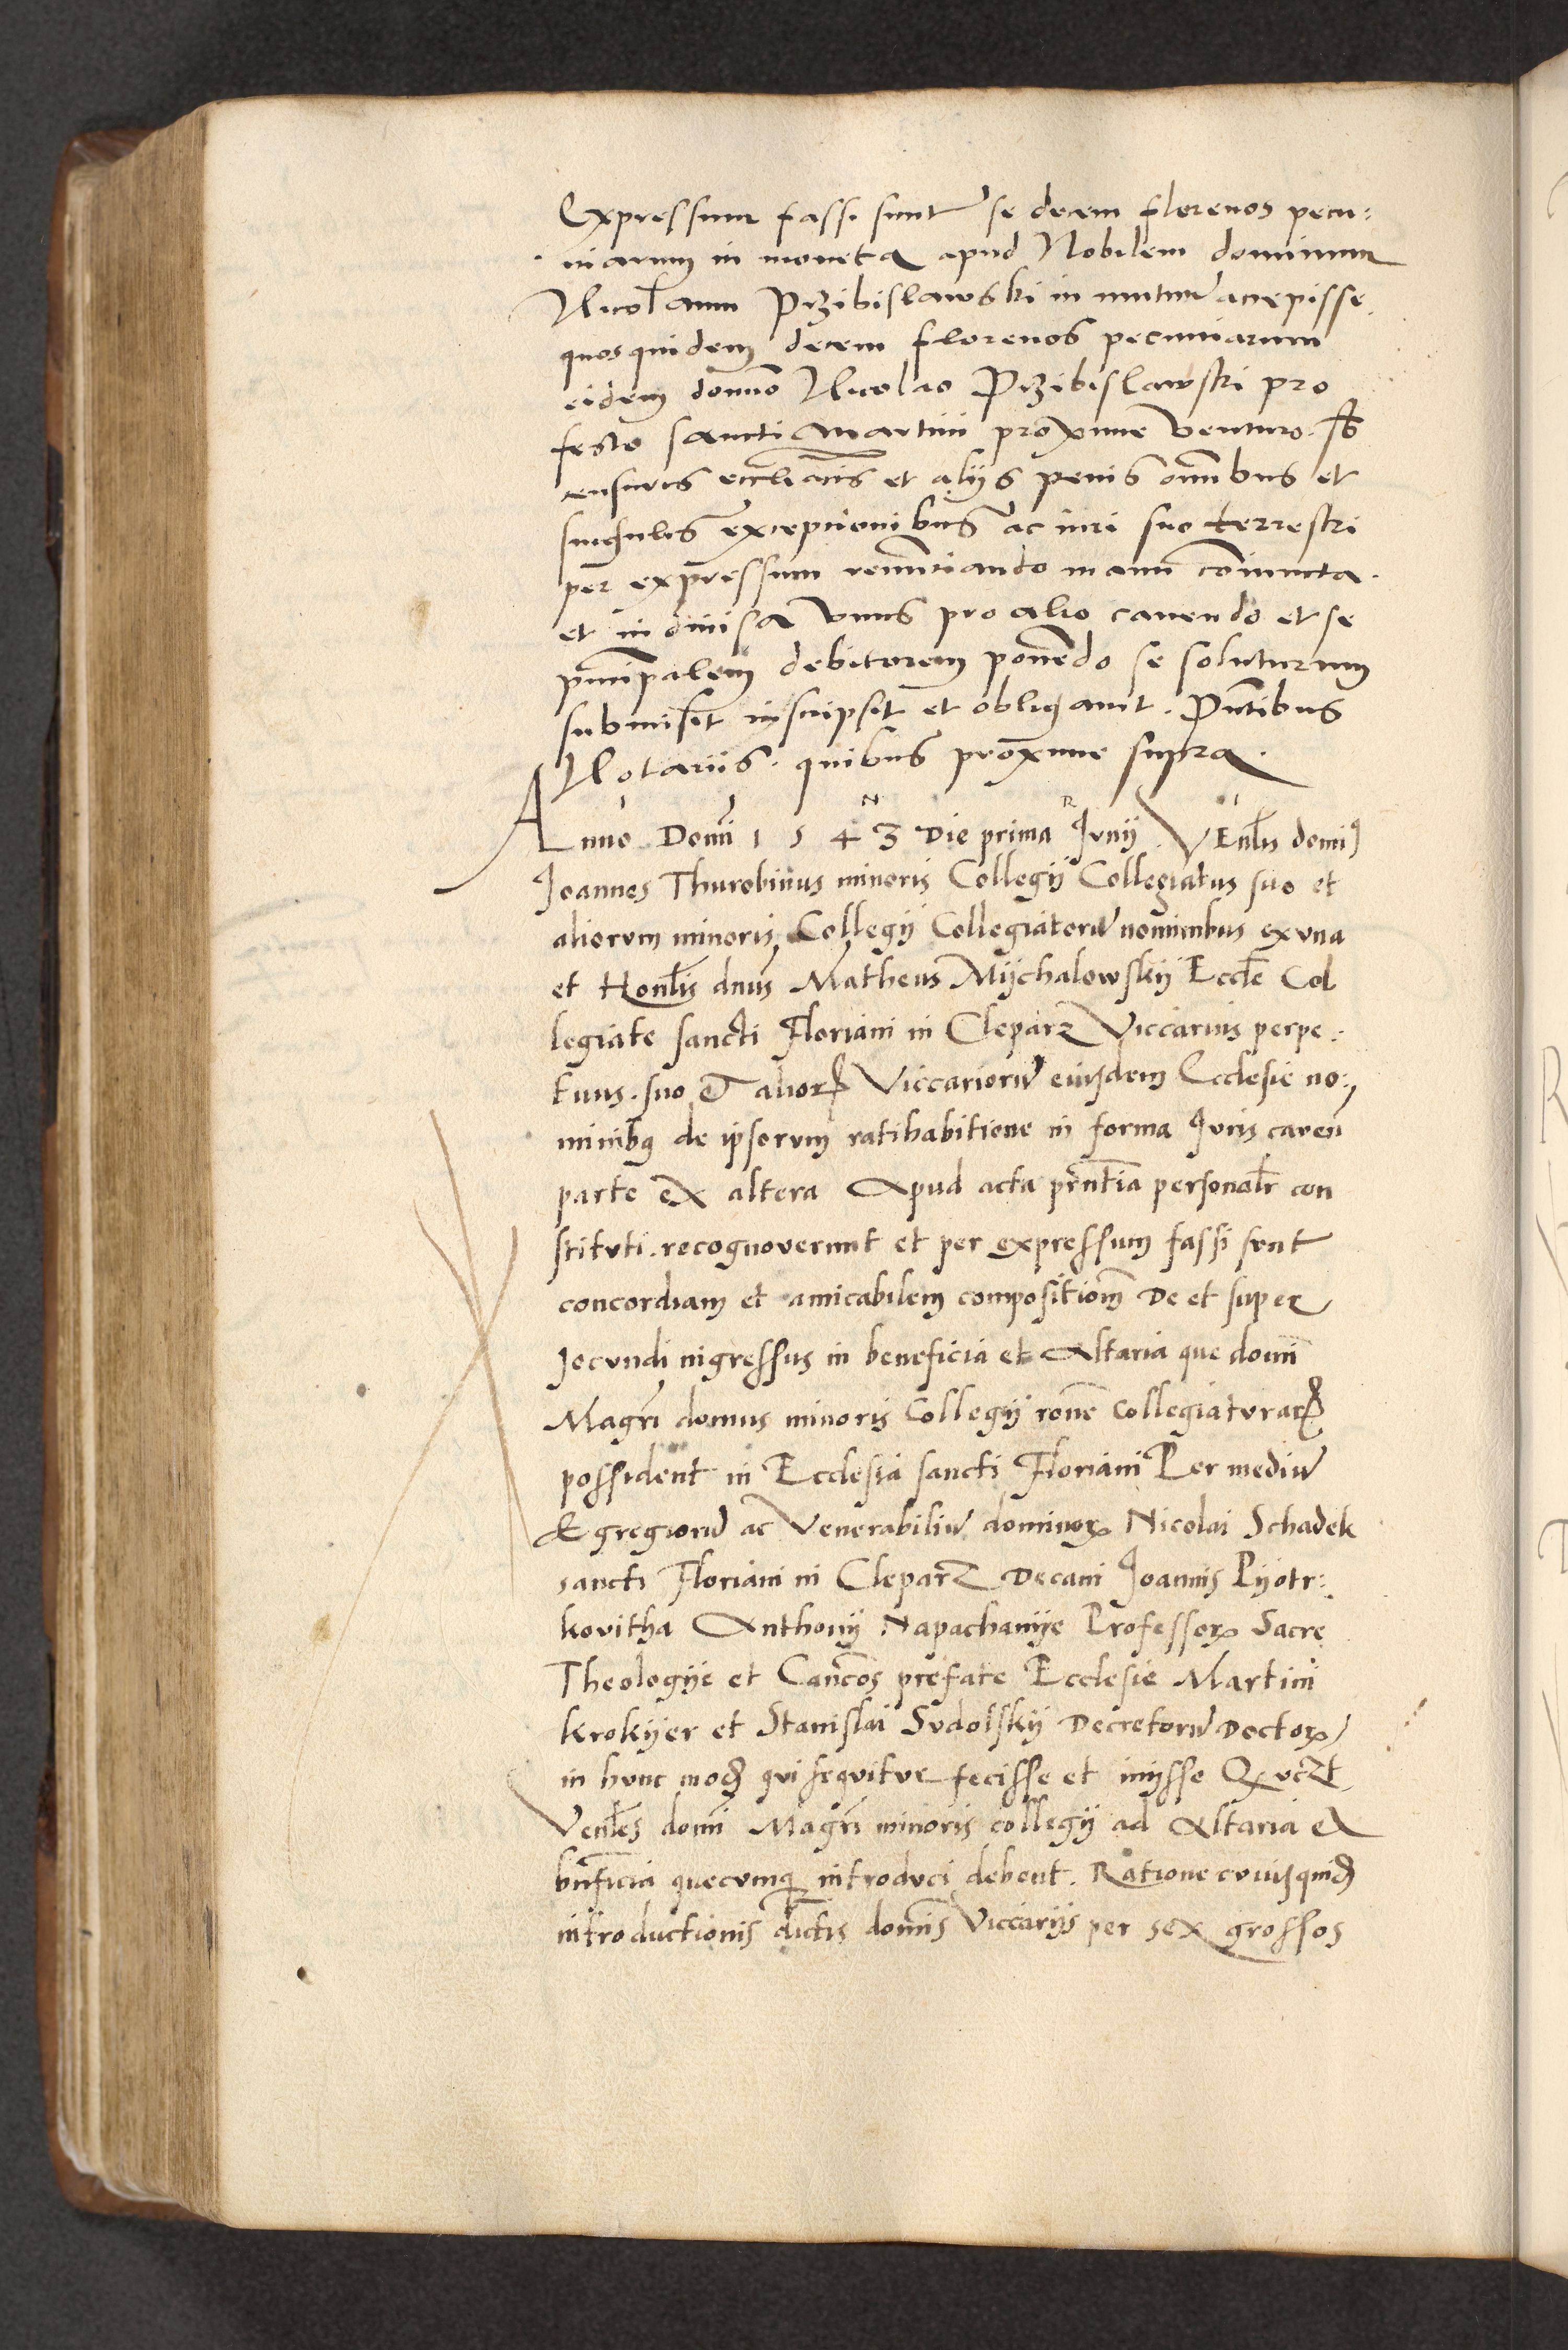 Expressum fassi sunt se decem florenos pecu:
niarum in moneta apud Nobilem dominum
Nicolaum Przibislawski in mutuū accepisse.
quos quidem decem florenos pecuniarum
eidem domno Nicolao Przibislawski pro
festo sancti Martini proxime venturo. sb
censuris eccliacis et alijs penis omnibus et
singulis exceptionibus ac iuri suo terrestri
per expressum renunciando manu coniuncta.
et indiuisa vnus pro alio cauendo et se
principalem debitorem ponendo se soluturum
submisit inscripsit et obligauit. Pntibus
Notariis. quibus proxime supra.
Anno Domi 1543 Die prima Junij. Venlis domi
Joannes Thurobinus minoris Collegij Collegiatus suo et
aliorum minoris Collegij Collegiatorū nominibus ex vna
et Honlis dnus Matheus Mijchalowskij Eccle Col
legiate sancti Floriani in Cleparz Viccarius perpe:
tuus. suo et alior Viccariorū eiusdem Ecclesie no:
minibꝫ de ipsorum ratihabitione in forma Juris caven
parte ex altera Apud acta prntia personalr con
stituti. recognouerunt et per expressum fassi sunt
concordiam et amicabilem compositiom De et super
Jocundi ingressus in beneficia et Altaria que domi
Magri domus minoris Collegij rone Collegiaturar
possident in Ecclesia sancti Floriani Per mediū
Egregiorū ac Venerabiliū dominoꝝ Nicolai Schadek
sancti Floriani in Cleparz Decani Joannis Pijotr:
kovitha Anthonij Napachanije Professoꝝ Sacre
Theologije et Cancos prefate Ecclesie Martini
krokijer et Stanislai Sudolskij Decretorū Doctoꝝ
in hunc mod qui sequitur fecisse et inijsse Q vczt
Venles domi Magri minoris collegij ad Altaria et
bnficia quecumqꝫ introduci debent. Ratione cuiusquid
introductionis dictis domis Viccarijs per sex grossos